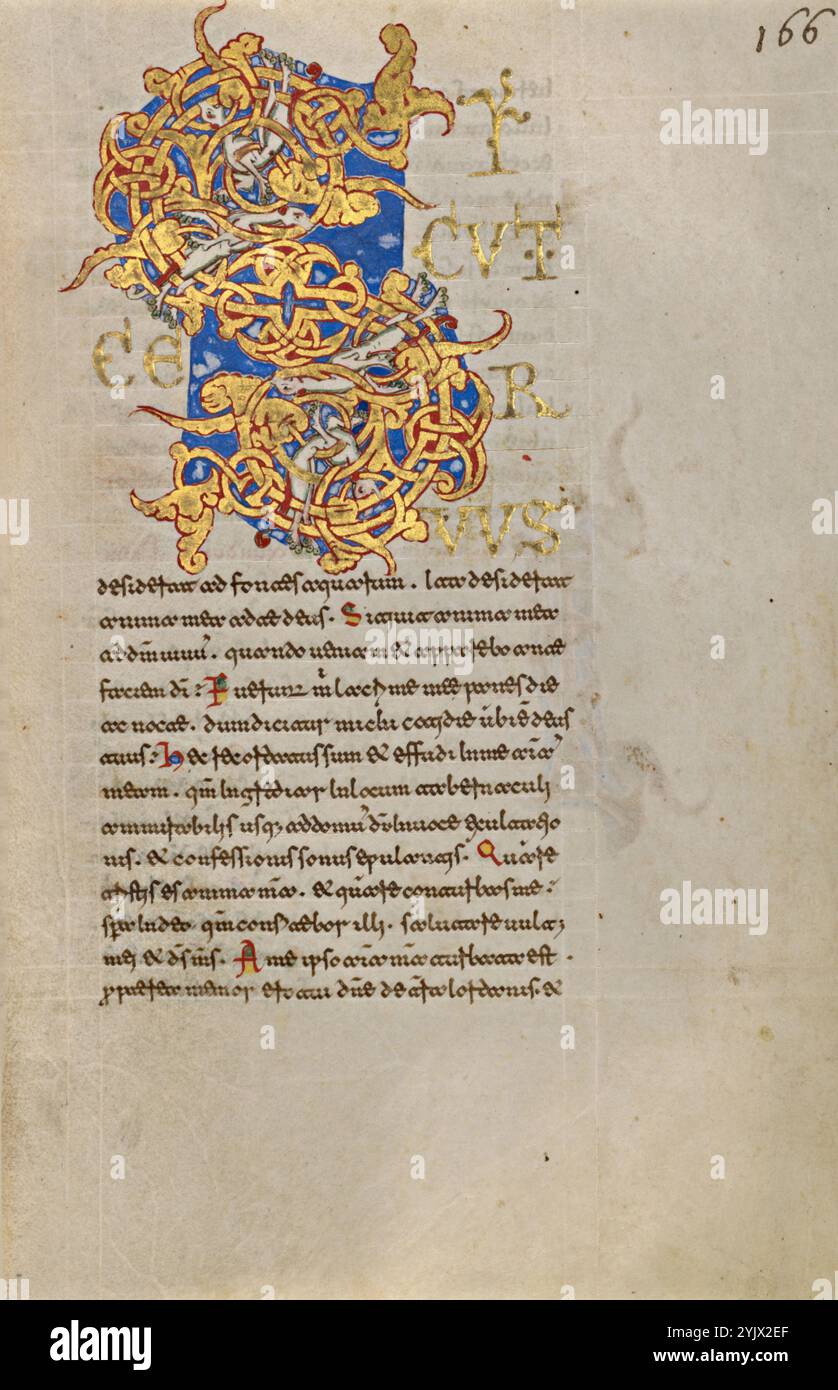 166
S I
CVT
CE R
VVS
desiderat ad fontes aquarum . Ita desiderat
anima mea ad te deus . Sitiuit anima mea
ad dm̄ uiuū . quando ueniam & apparebo ante
faciem dī ? Fuerunt m̄ lacrime mee panes die
ac nocte . dum dicitur michi cotidie ubi ē deus
tuus ? Hec recordatus sum & effudi in me aīā
meam . qm̄ ingrediar in locum tabernaculi
ammirabilis usq; ad domū dī . In uoce exultatio
nis . & confessionis sonus epulantis . Quare
tristis es anima mā . & quare conturbas me ?
spera in deo qm̄ confitebor illi . salutare uult;
mei & ds̄ ms̄ . A me ipso aīā mā turbata est .
propterea memor ero tui dnē de tr̄a iordanis . &
alamy
Image ID: 2YJX2EF
www.alamy.com